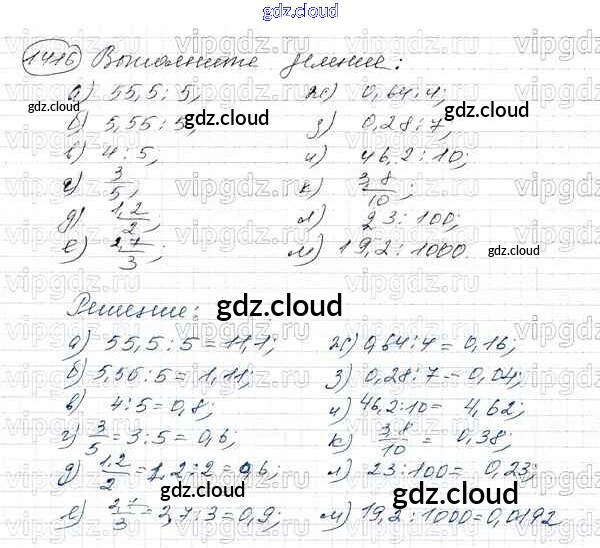 gdz.cloud
1416 Выполните деление:
а) 55,5 : 5; ж) 0,64 : 4;
gdz.cloud gdz.cloud
б) 5,55 : 5; з) 0,28 : 7;
gdz.cloud
в) 4 : 5; и) 46,2 : 10;
г) 3/5; к) 3,8/10;
д) 1,2/2; л) 23 : 100;
е) 2,7/3; м) 19,2 : 1000. gdz.cloud
Решение: gdz.cloud
а) 55,5 : 5 = 11,1; ж) 0,64 : 4 = 0,16;
б) 5,55 : 5 = 1,11; з) 0,28 : 7 = 0,04;
в) 4 : 5 = 0,8; и) 46,2 : 10 = 4,62;
г) 3/5 = 3 : 5 = 0,6; к) 3,8/10 = 0,38;
д) 1,2/2 = 1,2 : 2 = 0,6; л) 23 : 100 = 0,23;
е) 2,7/3 = 2,7 : 3 = 0,9; м) 19,2 : 1000 = 0,0192
gdz.cloud